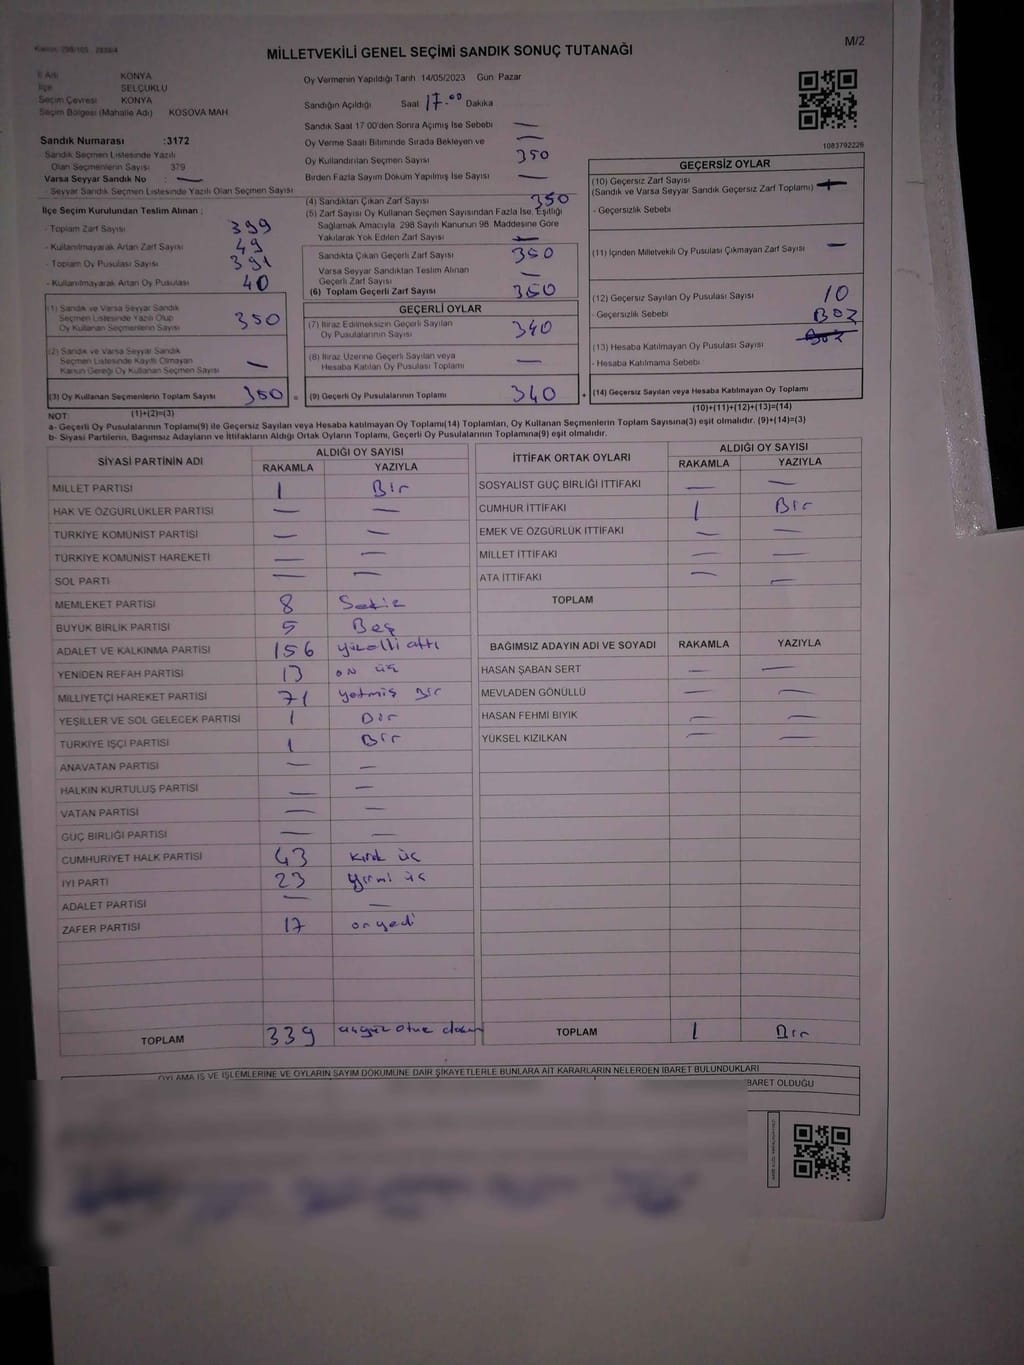 Kanun: 298/105 , 2839/4
M/2
MİLLETVEKİLİ GENEL SEÇİMİ SANDIK SONUÇ TUTANAĞI
İl Adı KONYA
İlçe SELÇUKLU
Seçim Çevresi KONYA
Seçim Bölgesi (Mahalle Adı) KOSOVA MAH
Sandık Numarası :3172
Sandık Seçmen Listesinde Yazılı
Olan Seçmenlerin Sayısı 379
Varsa Seyyar Sandık No : —
- Seyyar Sandık Seçmen Listesinde Yazılı Olan Seçmen Sayısı
İlçe Seçim Kurulundan Teslim Alınan ;
- Toplam Zarf Sayısı 399
- Kullanılmayarak Artan Zarf Sayısı 49
- Toplam Oy Pusulası Sayısı 391
- Kullanılmayarak Artan Oy Pusulası 40
(1) Sandık ve Varsa Seyyar Sandık
Seçmen Listesinde Yazılı Olup
Oy Kullanan Seçmenlerin Sayısı 350
(2) Sandık ve Varsa Seyyar Sandık
Seçmen Listesinde Kayıtlı Olmayan
Kanun Gereği Oy Kullanan Seçmen Sayısı —
(3) Oy Kullanan Seçmenlerin Toplam Sayısı 350 =
Oy Vermenin Yapıldığı Tarih 14/05/2023 Gün Pazar
Sandığın Açıldığı Saat 17.00 Dakika
Sandık Saat 17 00'den Sonra Açımış İse Sebebi —
Oy Verme Saati Bitiminde Sırada Bekleyen ve —
Oy Kullandırılan Seçmen Sayısı 350
Birden Fazla Sayım Döküm Yapılmış İse Sayısı —
(4) Sandıktan Çıkan Zarf Sayısı 350
(5) Zarf Sayısı Oy Kullanan Seçmen Sayısından Fazla İse, Eşitliği
Sağlamak Amacıyla 298 Sayılı Kanunun 98. Maddesine Göre
Yakılarak Yok Edilen Zarf Sayısı —
Sandıkta Çıkan Geçerli Zarf Sayısı 350
Varsa Seyyar Sandıktan Teslim Alınan
Geçerli Zarf Sayısı —
(6) Toplam Geçerli Zarf Sayısı 350
GEÇERLİ OYLAR
(7) İtiraz Edilmeksizin Geçerli Sayılan
Oy Pusulalarının Sayısı 340
(8) İtiraz Üzerine Geçerli Sayılan veya
Hesaba Katılan Oy Pusulası Toplamı —
(9) Geçerli Oy Pusulalarının Toplamı 340 +
1083792226
GEÇERSİZ OYLAR
(10) Geçersiz Zarf Sayısı
(Sandık ve Varsa Seyyar Sandık Geçersiz Zarf Toplamı)
- Geçersizlik Sebebi
(11) İçinden Milletvekili Oy Pusulası Çıkmayan Zarf Sayısı —
(12) Geçersiz Sayılan Oy Pusulası Sayısı 10
- Geçersizlik Sebebi Boz
(13) Hesaba Katılmayan Oy Pusulası Sayısı
- Hesaba Katılmama Sebebi
(14) Geçersiz Sayılan veya Hesaba Katılmayan Oy Toplamı
NOT: (1)+(2)=(3) (10)+(11)+(12)+(13)=(14)
a- Geçerli Oy Pusulalarının Toplamı(9) ile Geçersiz Sayılan veya Hesaba katılmayan Oy Toplamı(14) Toplamları, Oy Kullanan Seçmenlerin Toplam Sayısına(3) eşit olmalıdır. (9)+(14)=(3)
b- Siyasi Partilerin, Bağımsız Adayların ve İttifakların Aldığı Ortak Oyların Toplamı, Geçerli Oy Pusulalarının Toplamına(9) eşit olmalıdır.
SİYASİ PARTİNİN ADI ALDIĞI OY SAYISI
RAKAMLA YAZIYLA
MİLLET PARTİSİ 1 Bir
HAK VE ÖZGÜRLÜKLER PARTİSİ — —
TÜRKİYE KOMÜNİST PARTİSİ — —
TÜRKİYE KOMÜNİST HAREKETİ — —
SOL PARTİ — —
MEMLEKET PARTİSİ 8 Sekiz
BÜYÜK BİRLİK PARTİSİ 5 Beş
ADALET VE KALKINMA PARTİSİ 156 yüzelli altı
YENİDEN REFAH PARTİSİ 13 on üç
MİLLİYETÇİ HAREKET PARTİSİ 71 yetmiş Bir
YEŞİLLER VE SOL GELECEK PARTİSİ 1 Bir
TÜRKİYE İŞÇİ PARTİSİ 1 Bir
ANAVATAN PARTİSİ — —
HALKIN KURTULUŞ PARTİSİ — —
VATAN PARTİSİ — —
GÜÇ BİRLİĞİ PARTİSİ — —
CUMHURİYET HALK PARTİSİ 43 kırk üç
İYİ PARTİ 23 yirmi üç
ADALET PARTİSİ — —
ZAFER PARTİSİ 17 on yedi
TOPLAM 339 üçyüz otuz dokuz
İTTİFAK ORTAK OYLARI ALDIĞI OY SAYISI
RAKAMLA YAZIYLA
SOSYALİST GÜÇ BİRLİĞİ İTTİFAKI — —
CUMHUR İTTİFAKI 1 Bir
EMEK VE ÖZGÜRLÜK İTTİFAKI — —
MİLLET İTTİFAKI — —
ATA İTTİFAKI — —
TOPLAM
BAĞIMSIZ ADAYIN ADI VE SOYADI RAKAMLA YAZIYLA
HASAN ŞABAN SERT — —
MEVLADEN GÖNÜLLÜ — —
HASAN FEHMİ BIYIK — —
YÜKSEL KIZILKAN — —
TOPLAM 1 Bir
OYLAMA İŞ VE İŞLEMLERİNE VE OYLARIN SAYIM DÖKÜMÜNE DAİR ŞİKAYETLERLE BUNLARA AİT KARARLARIN NELERDEN İBARET BULUNDUKLARI
BARET OLDUĞU